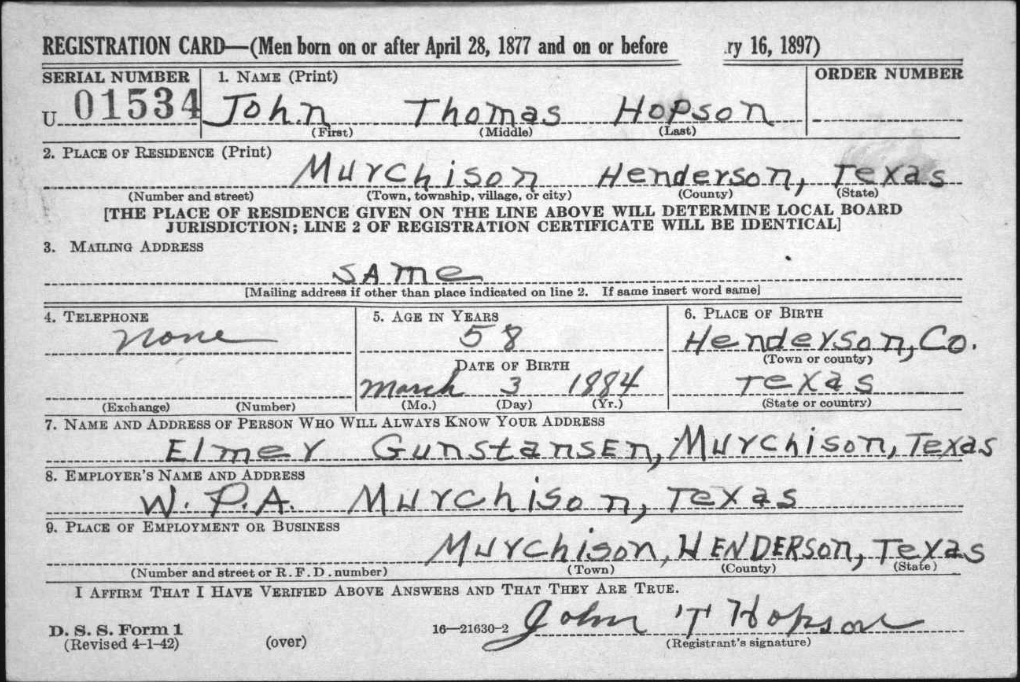 REGISTRATION CARD—(Men born on or after April 28, 1877 and on or before ry 16, 1897)
SERIAL NUMBER 1. NAME (Print) ORDER NUMBER
U 01534 John Thomas Hopson
(First) (Middle) (Last)
2. PLACE OF RESIDENCE (Print)
Murchison Henderson, Texas
(Number and street) (Town, township, village, or city) (County) (State)
[THE PLACE OF RESIDENCE GIVEN ON THE LINE ABOVE WILL DETERMINE LOCAL BOARD
JURISDICTION; LINE 2 OF REGISTRATION CERTIFICATE WILL BE IDENTICAL]
3. MAILING ADDRESS
SAME
[Mailing address if other than place indicated on line 2. If same insert word same]
4. TELEPHONE 5. AGE IN YEARS 6. PLACE OF BIRTH
None 58 Henderson, Co.
(Town or county)
DATE OF BIRTH
March 3 1884 Texas
(Exchange) (Number) (Mo.) (Day) (Yr.) (State or country)
7. NAME AND ADDRESS OF PERSON WHO WILL ALWAYS KNOW YOUR ADDRESS
Elmer Gunstansen, Murchison, Texas
8. EMPLOYER'S NAME AND ADDRESS
W. P.A. Murchison, Texas
9. PLACE OF EMPLOYMENT OR BUSINESS
Murchison, HENDERSON, Texas
(Number and street or R. F. D. number) (Town) (County) (State)
I AFFIRM THAT I HAVE VERIFIED ABOVE ANSWERS AND THAT THEY ARE TRUE.
D. S. S. Form 1 16—21630-2 John T Hopson
(Revised 4-1-42) (over) (Registrant's signature)